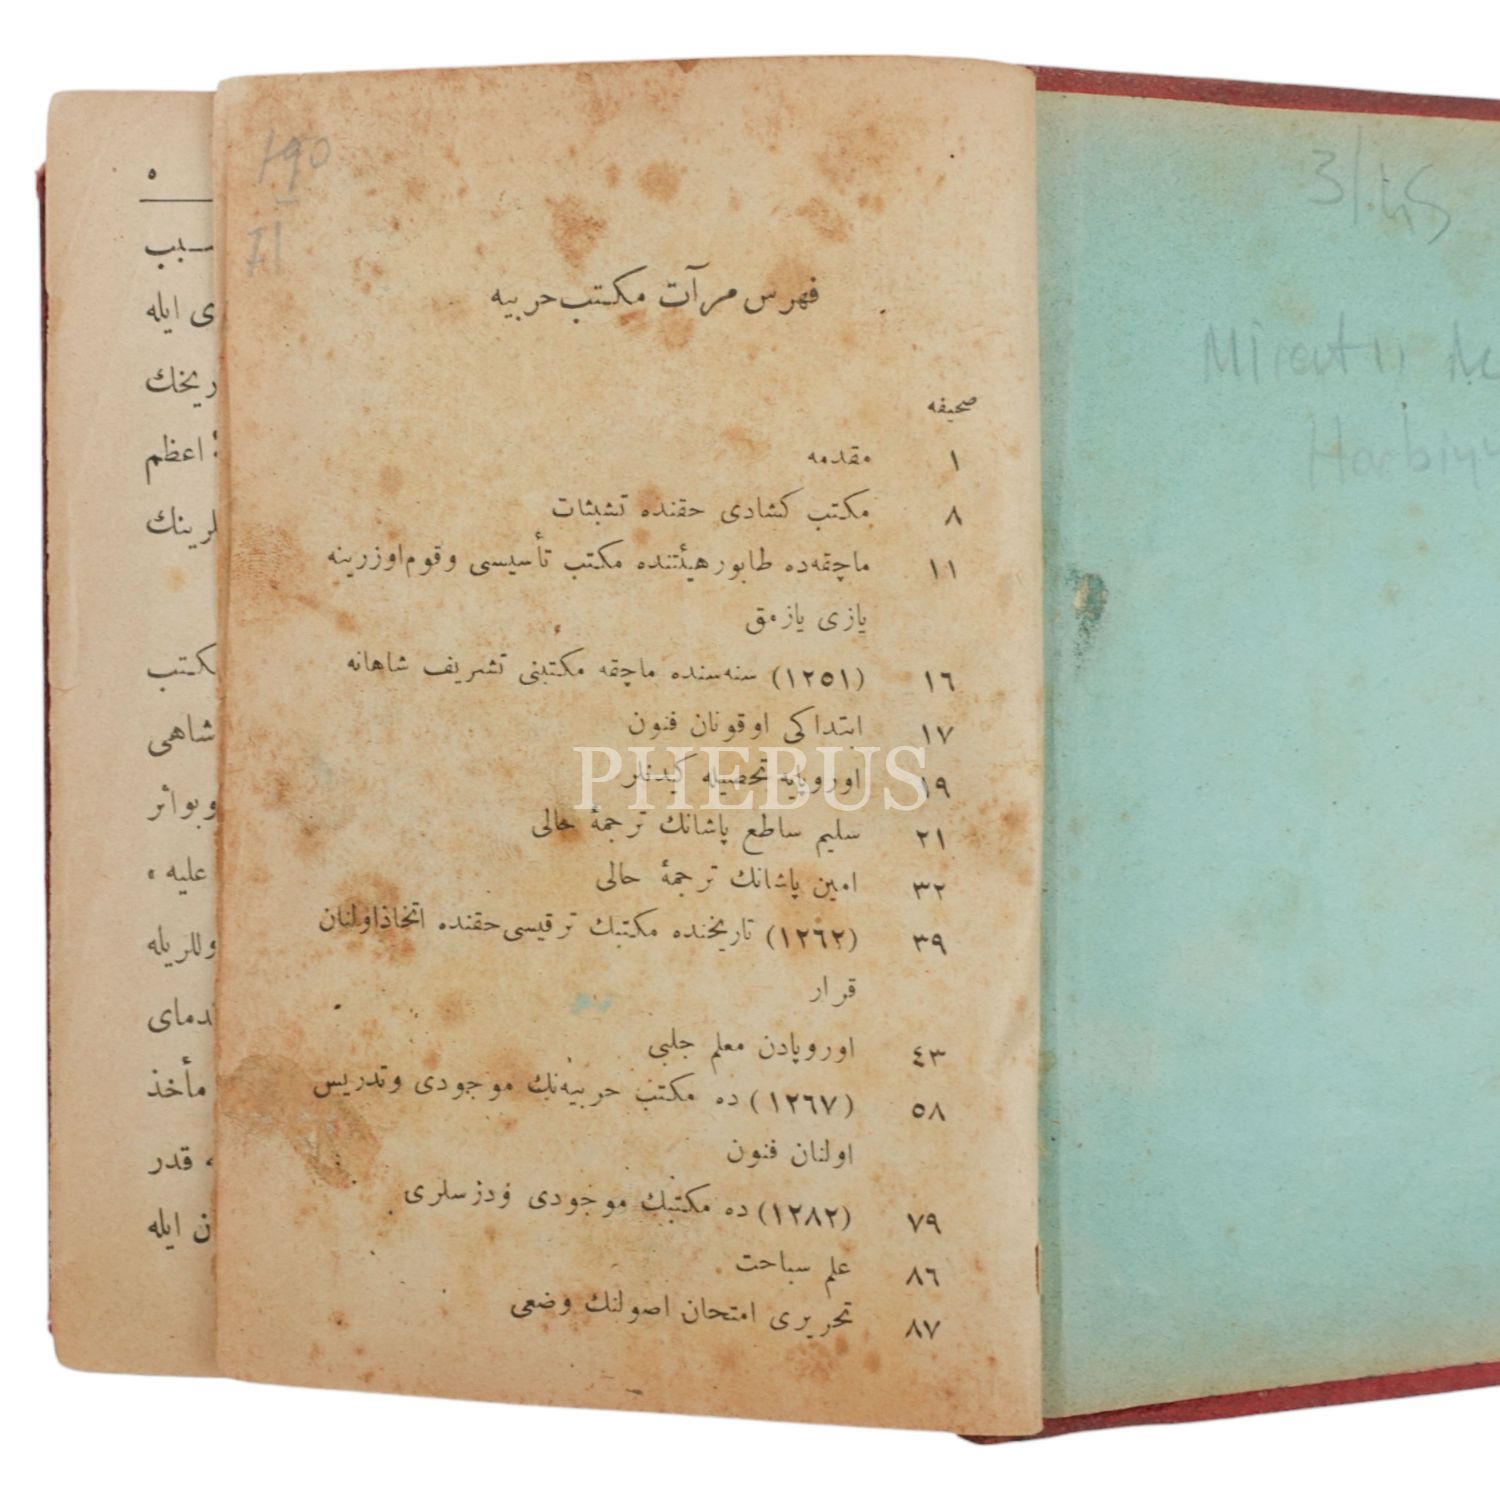 فهرس مرآت مكتب حربيه
صحيفه
١ مقدمه
٨ مكتب كشادى حقنده تشبثات
١١ ماچقه‌ده طابور هيئتنده مكتب تأسيسى وقوم اوزرينه
يازى يازمق
١٦ (١٢٥١) سنه‌سنده ماچقه مكتبنى تشريف شاهانه
١٧ ابتداكى اوقونان فنون
١٩ اوروپايه تحصيله كيدنلر
٢١ سليم ساطع پاشانك ترجمهٔ حالى
٣٢ امين پاشانك ترجمهٔ حالى
٣٩ (١٢٦٢) تاريخنده مكتبك ترقيسى حقنده اتخاذ اولنان
قرار
٤٣ اوروپادن معلم جلبى
٥٨ (١٢٦٧) ده مكتب حربيه‌نك موجودى وتدريس
اولنان فنون
٧٩ (١٢٨٢) ده مكتبك موجودى ودرسلرى
٨٦ علم سباحت
٨٧ تحريرى امتحان اصولنك وضعى
PHEBUS
190
71
3/
Harbiy
٥
ى ايله
ريخك
اعظم
لرينك
مكتب
شاهى
وبواثر
عليه .
وللريله
دماى
مأخذ
قدر
ن ايله